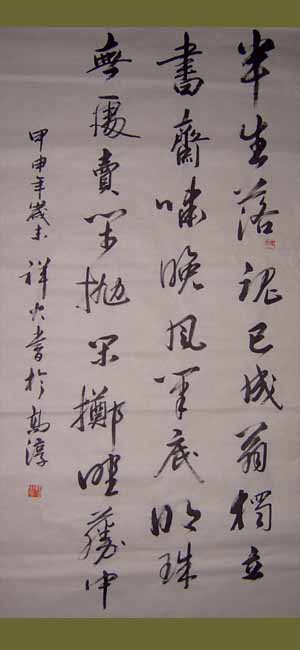 半生落魄已成翁獨立
書齋嘯晚風筆底明珠
無處賣閒抛閒擲野藤中
甲申年歲末祥火書於高淳